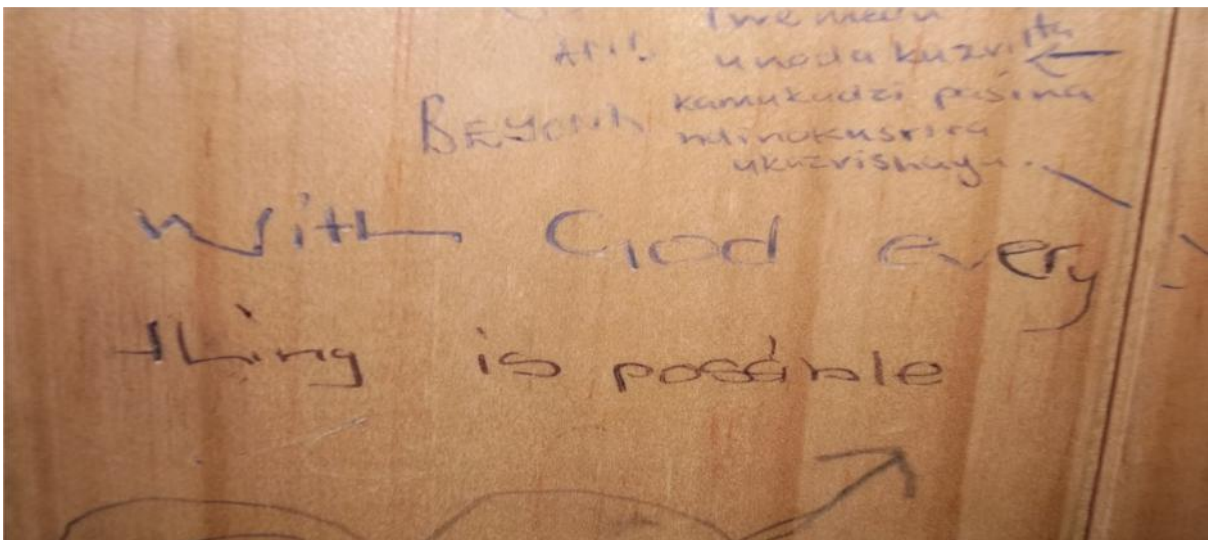 unoda kuzviita
BEYOND kamukudzi pasina
ndinokusvira
ukazvishaya..
With God every
thing is possible